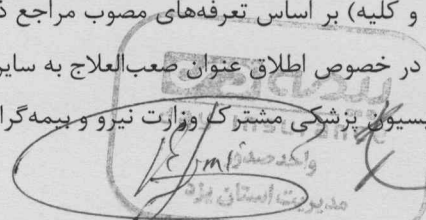 و کلیه) بر اساس تعرفه‌های مصوب مراجع ذ
در خصوص اطلاق عنوان صعب‌العلاج به سایر
یسیون پزشکی مشترک وزارت نیرو و بیمه‌گرا
واحد صدور
مدیریت استان یزد